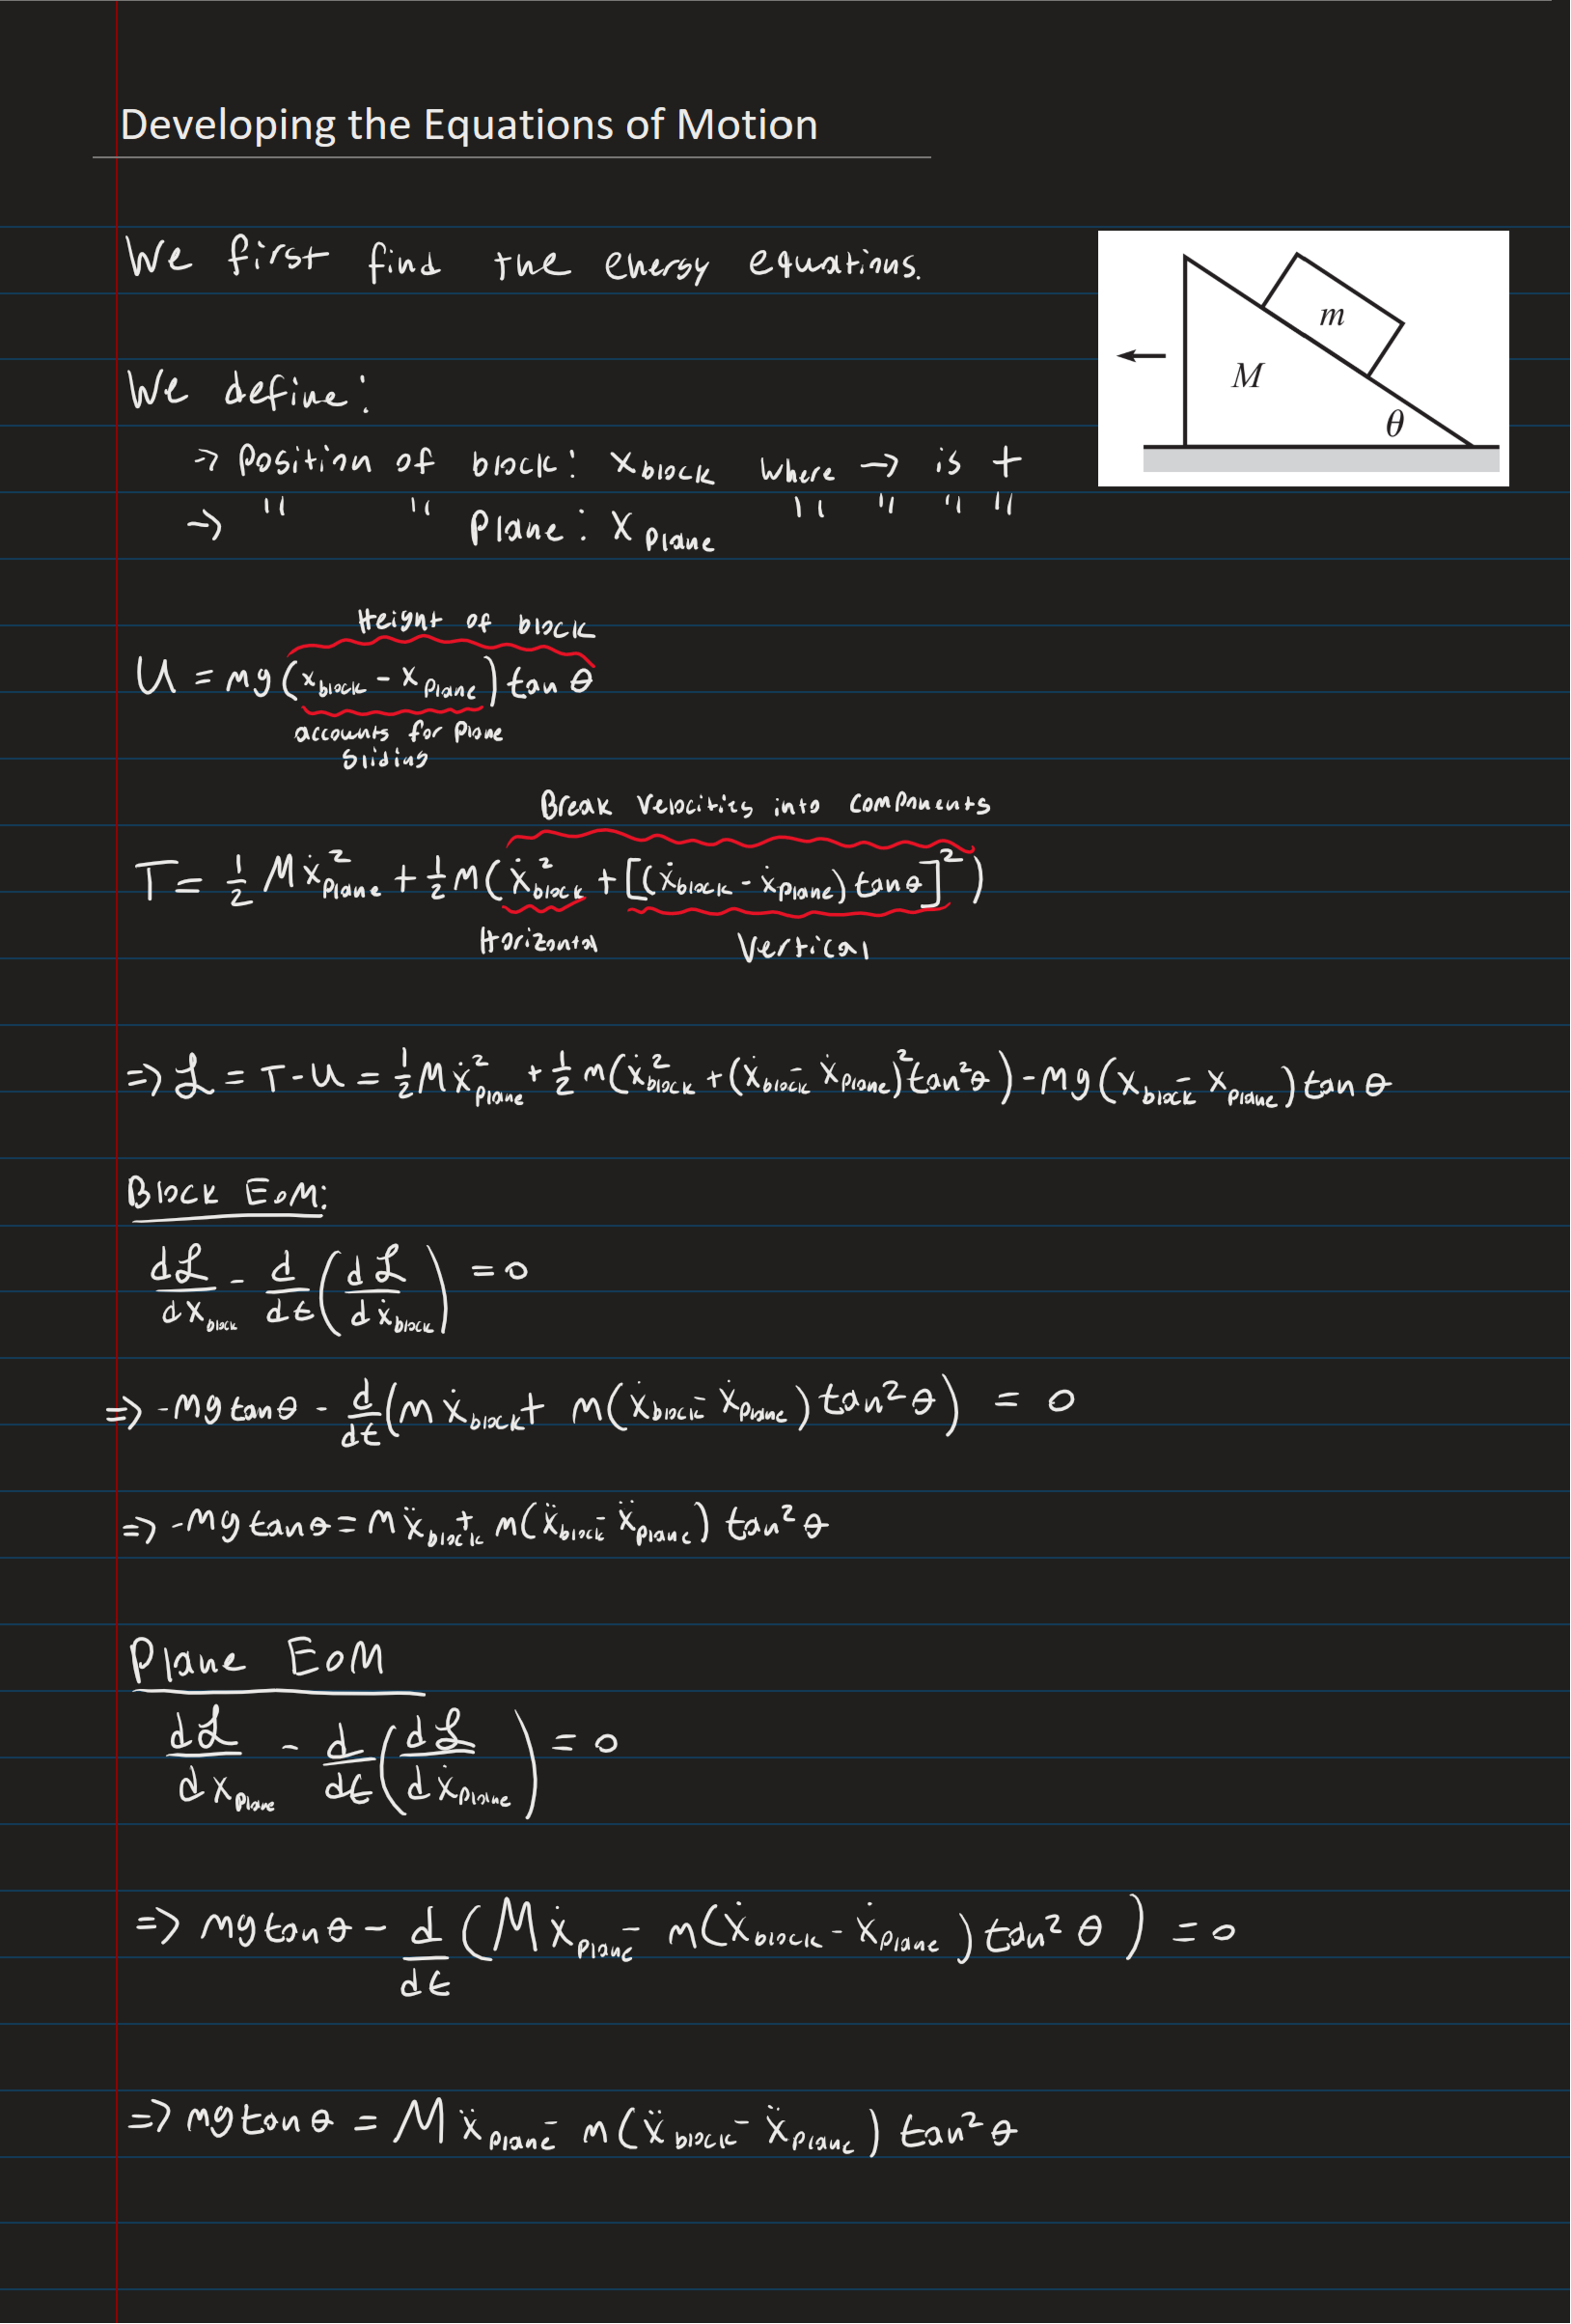 Developing the Equations of Motion
We first find the energy equations.
m
M
θ
We define:
→ Position of block: x_block where → is +
→ " " Plane: x_Plane " " " "
Height of block
U = mg(x_block - x_Plane) tan θ
accounts for Plane
sliding
Break Velocities into Components
T = 1/2 M ẋ²_Plane + 1/2 m(ẋ²_block + [(ẋ_block - ẋ_Plane) tan θ]²)
Horizontal Vertical
⇒ ℒ = T - U = 1/2 M ẋ²_Plane + 1/2 m(ẋ²_block + (ẋ_block - ẋ_Plane)² tan²θ) - mg(x_block - x_Plane) tan θ
Block EoM:
dℒ/dx_block - d/dt(dℒ/dẋ_block) = 0
⇒ -mg tan θ - d/dt(m ẋ_block + m(ẋ_block - ẋ_Plane) tan² θ) = 0
⇒ -mg tan θ = m ẍ_block + m(ẍ_block - ẍ_Plane) tan² θ
Plane EoM
dℒ/dx_Plane - d/dt(dℒ/dẋ_Plane) = 0
⇒ mg tan θ - d/dt(M ẋ_Plane - m(ẋ_block - ẋ_Plane) tan² θ) = 0
⇒ mg tan θ = M ẍ_Plane - m(ẍ_block - ẍ_Plane) tan² θ